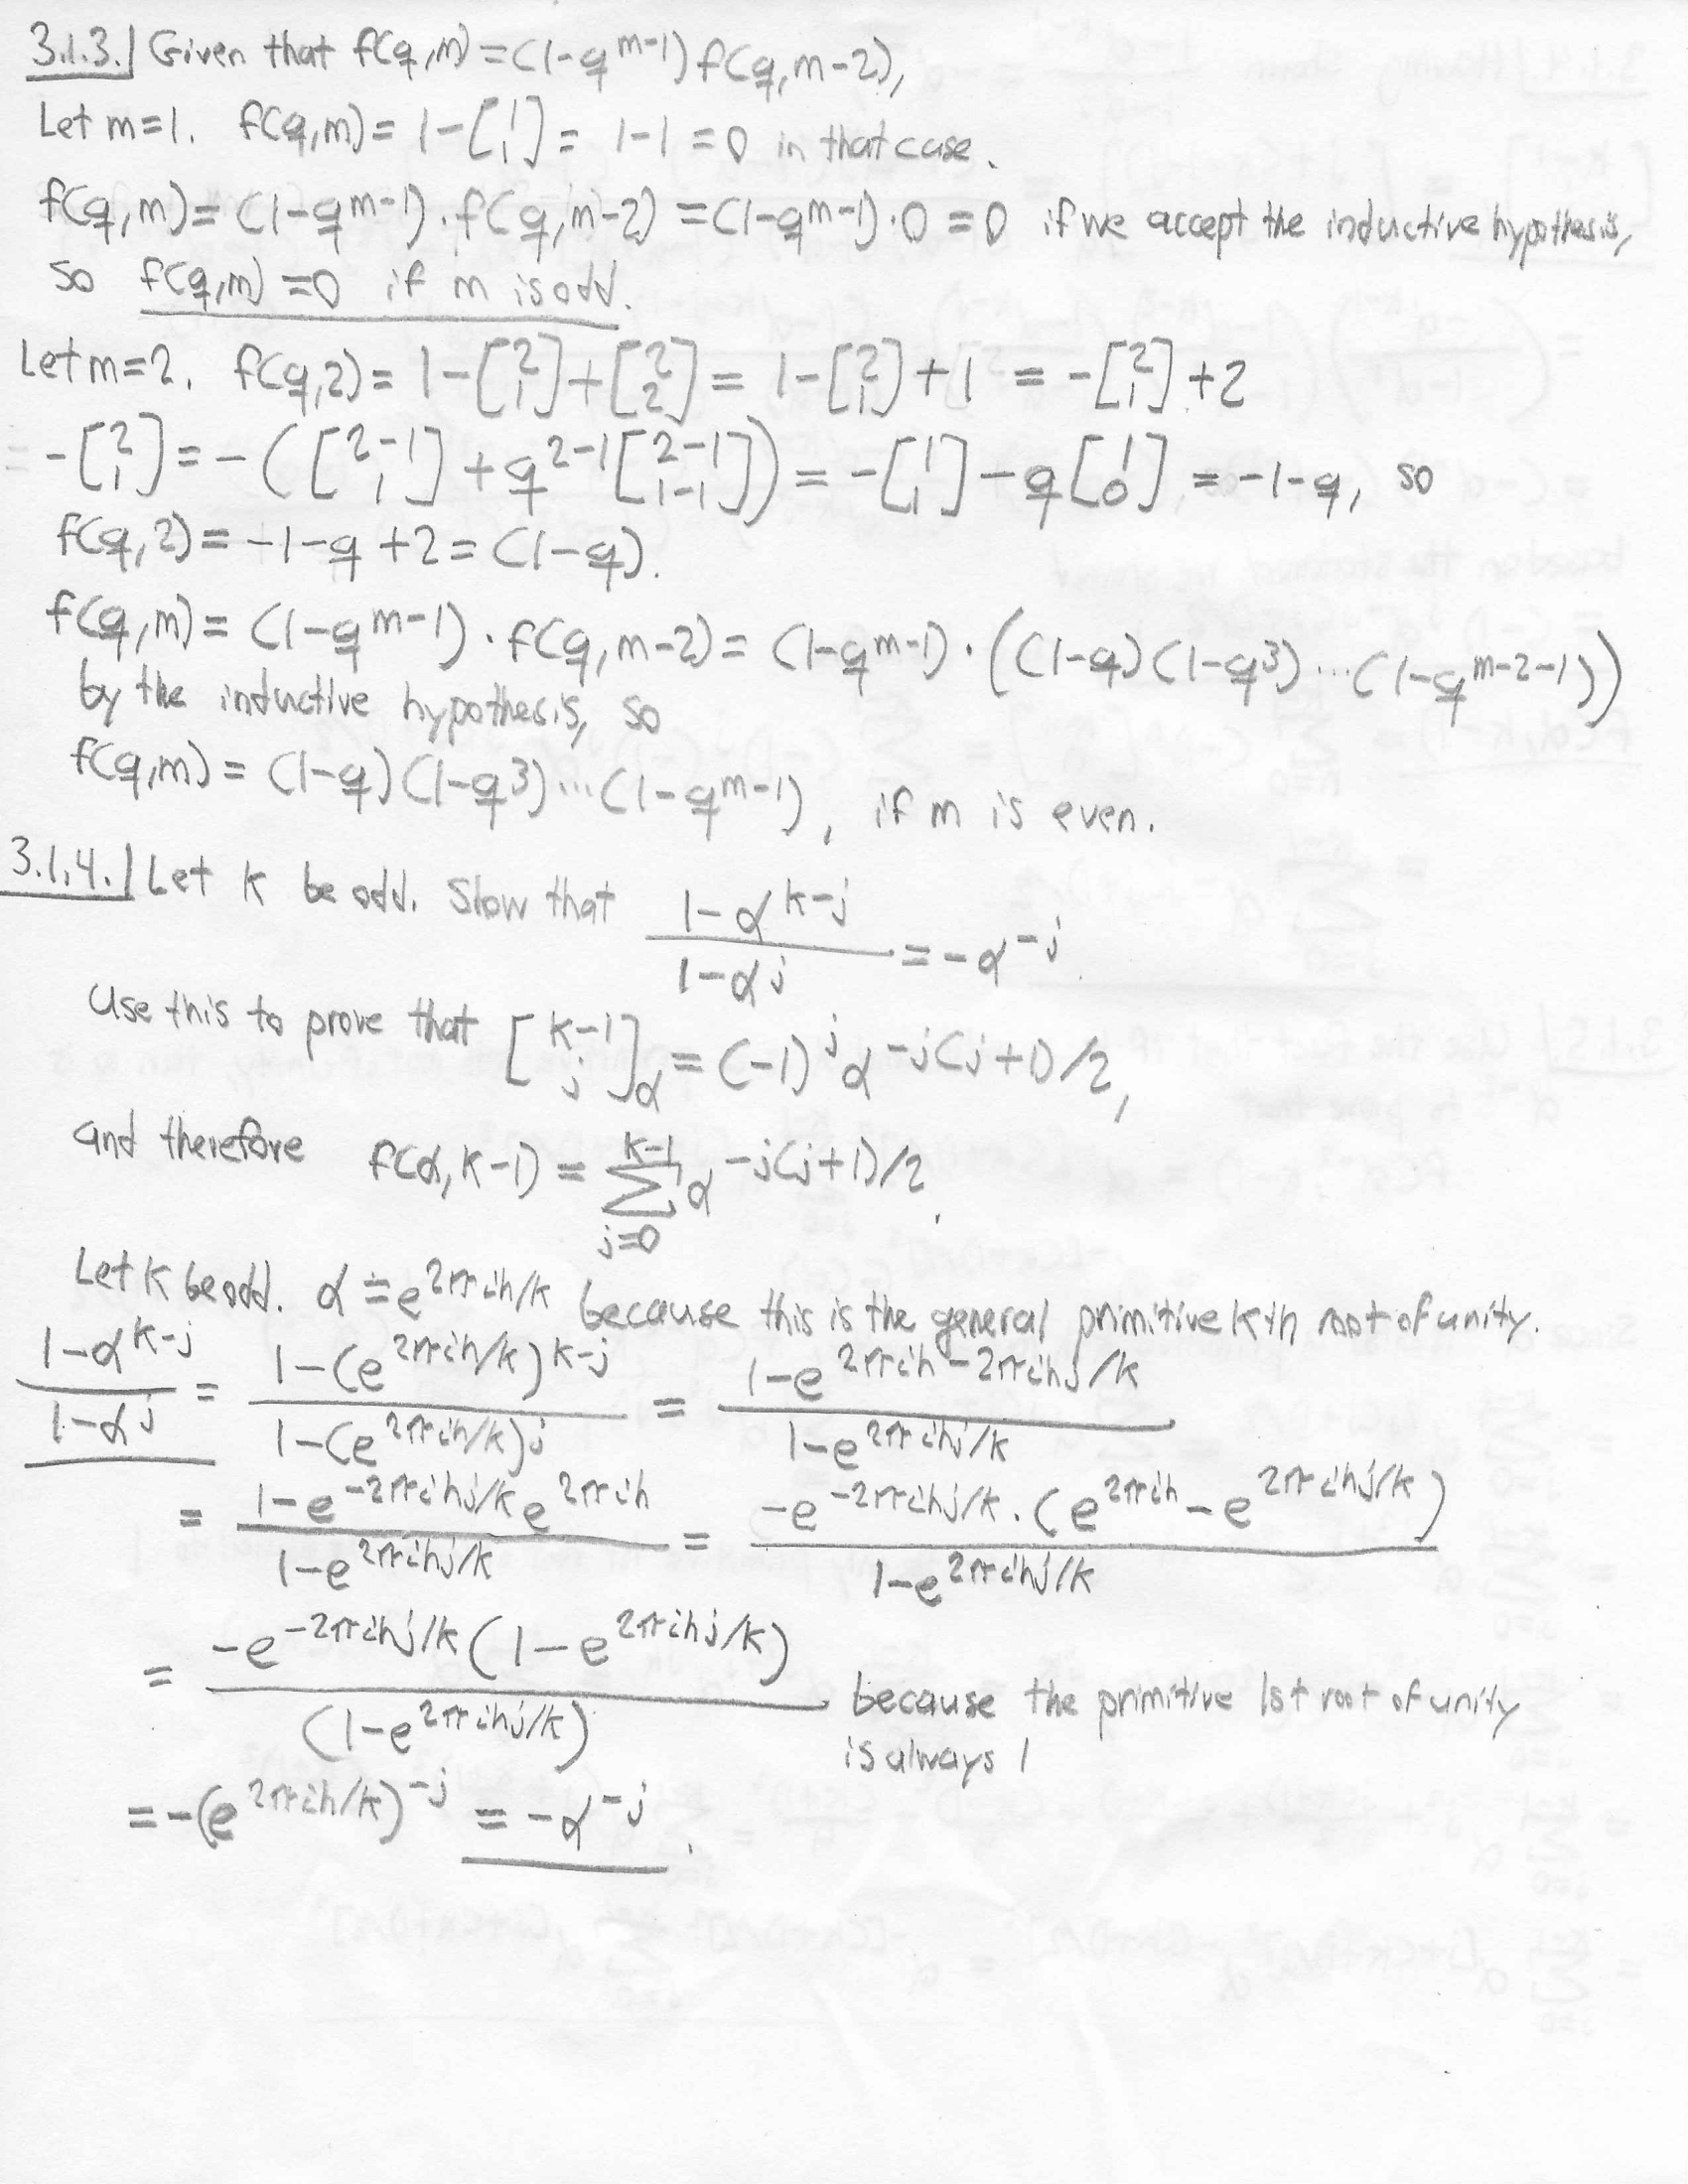 3.1.3. Given that f(q,m)=(1-q^{m-1})f(q,m-2),
Let m=1. f(q,m)=1-[1 1]=1-1=0 in that case.
f(q,m)=(1-q^{m-1})·f(q,m-2)=(1-q^{m-1})·0=0 if we accept the inductive hypothesis,
so f(q,m)=0 if m is odd.
Let m=2. f(q,2)=1-[2 1]+[2 2]=1-[2 1]+1=-[2 1]+2
-[2 1]=-([2-1 1]+q^{2-1}[2-1 1-1])=-[1 1]-q[1 0]=-1-q, so
f(q,2)=-1-q+2=(1-q).
f(q,m)=(1-q^{m-1})·f(q,m-2)=(1-q^{m-1})·((1-q)(1-q^3)...(1-q^{m-2-1}))
by the inductive hypothesis, so
f(q,m)=(1-q)(1-q^3)...(1-q^{m-1}), if m is even.
3.1.4. Let k be odd. Show that (1-α^{k-j})/(1-α^j)=-α^{-j}.
Use this to prove that [k-1 j]_α=(-1)^j α^{-j(j+1)/2},
and therefore f(α,k-1)=∑_{j=0}^{k-1} α^{-j(j+1)/2}.
Let k be odd. α=e^{2πih/k} because this is the general primitive kth root of unity.
(1-α^{k-j})/(1-α^j)=(1-(e^{2πih/k})^{k-j})/(1-(e^{2πih/k})^j)=(1-e^{2πih-2πihj/k})/(1-e^{2πihj/k})
=(1-e^{-2πihj/k}e^{2πih})/(1-e^{2πihj/k})=(-e^{-2πihj/k}·(e^{2πih}-e^{2πihj/k}))/(1-e^{2πihj/k})
=(-e^{-2πihj/k}(1-e^{2πihj/k}))/((1-e^{2πihj/k})) because the primitive 1st root of unity
is always 1
=-(e^{2πih/k})^{-j}=-α^{-j}.